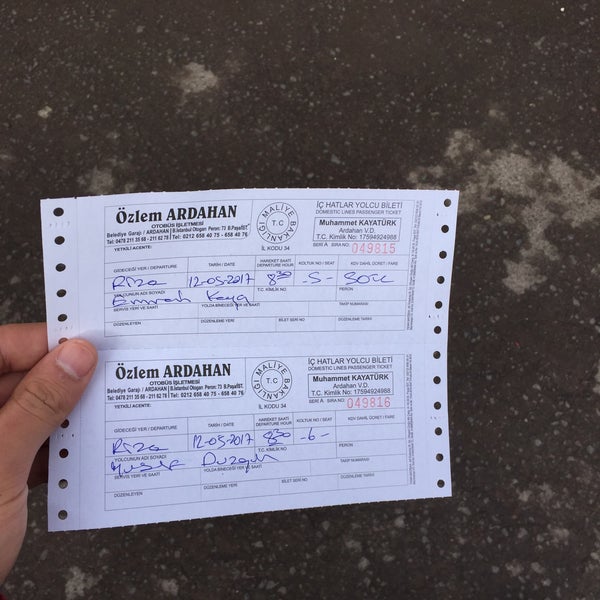 Özlem ARDAHAN
OTOBÜS İŞLETMESİ
Belediye Garajı / ARDAHAN B.İstanbul Otogarı Peron: 73 B.Paşa/İST.
Tel: 0478 211 35 68 - 211 62 78 Tel: 0212 658 40 75 - 658 40 76
YETKİLİ ACENTE:
MALİYE BAKANLIĞI
T.C
İL KODU 34
İÇ HATLAR YOLCU BİLETİ
DOMESTIC LINES PASSENGER TICKET
Muhammet KAYATÜRK
Ardahan V.D.
T.C. Kimlik No: 17594924988
SERİ A SIRA NO: 049815
GİDECEĞİ YER / DEPARTURE TARİH / DATE HAREKET SAATİ DEPARTURE HOUR KOLTUK NO / SEAT KDV DAHİL ÜCRET / FARE
Rize 12-05-2017 8 30 -5-
YOLCUNUN ADI SOYADI T.C. KİMLİK NO PERON
Emrah Kaya
SERVİS YERİ VE SAATİ YOLDA BİNECEĞİ YER VE SAATİ TAKİP NUMARASI
DÜZENLEYEN DÜZENLEME YERİ BİLET SERİ NO DÜZENLEME TARİHİ
Özlem ARDAHAN
OTOBÜS İŞLETMESİ
Belediye Garajı / ARDAHAN B.İstanbul Otogarı Peron: 73 B.Paşa/İST.
Tel: 0478 211 35 68 - 211 62 78 Tel: 0212 658 40 75 - 658 40 76
YETKİLİ ACENTE:
MALİYE BAKANLIĞI
T.C
İL KODU 34
İÇ HATLAR YOLCU BİLETİ
DOMESTIC LINES PASSENGER TICKET
Muhammet KAYATÜRK
Ardahan V.D.
T.C. Kimlik No: 17594924988
SERİ A SIRA NO: 049816
GİDECEĞİ YER / DEPARTURE TARİH / DATE HAREKET SAATİ DEPARTURE HOUR KOLTUK NO / SEAT KDV DAHİL ÜCRET / FARE
Rize 12-05-2017 8 30 -6-
YOLCUNUN ADI SOYADI T.C. KİMLİK NO PERON
Yusuf
SERVİS YERİ VE SAATİ YOLDA BİNECEĞİ YER VE SAATİ TAKİP NUMARASI
DÜZENLEYEN DÜZENLEME YERİ BİLET SERİ NO DÜZENLEME TARİHİ